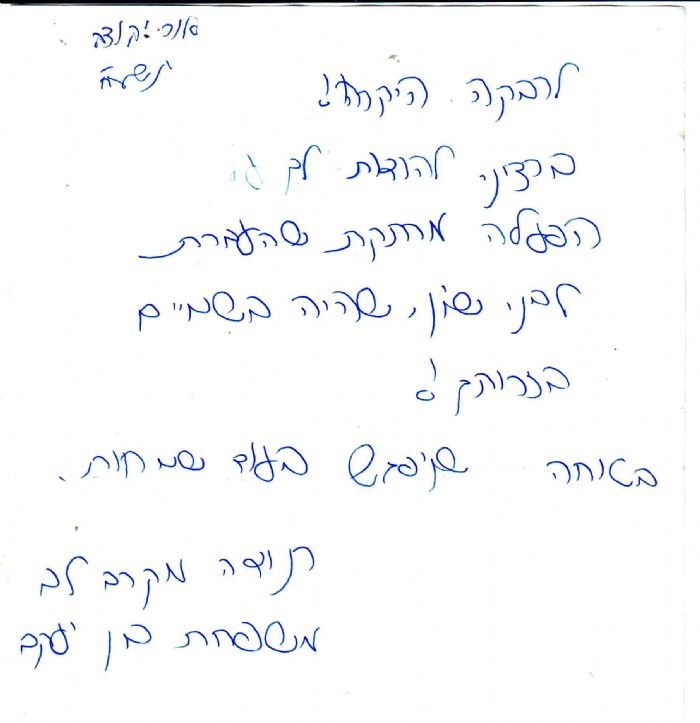 אור יהודה
תשע"ח
לרבקה היקרה!
ברצוני להודות לך על
הפעלה מרתקת שהעברת
לבני ששון, שהיה בשמיים
בזכותך!
בטוחה שניפגש בעוד שמחות.
תודה מקרב לב
משפחת בן יעקב